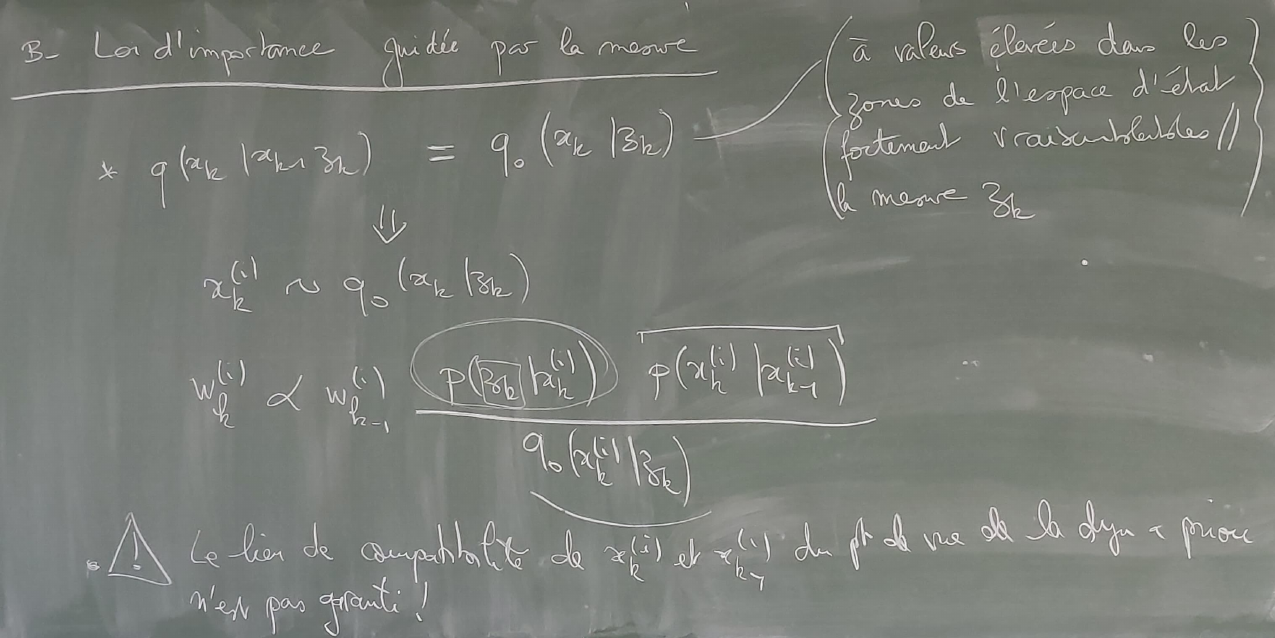 B- Loi d'importance guidée par la mesure
(à valeurs élevées dans les
zones de l'espace d'état
fortement vraisemblables //
la mesure z_k)
* q(x_k | x_{k-1}, z_k) = q_0(x_k | z_k)
⇓
x_k^{(i)} ~ q_0(x_k | z_k)
w_k^{(i)} ∝ w_{k-1}^{(i)} p(z_k | x_k^{(i)}) p(x_k^{(i)} | x_{k-1}^{(i)})
q_0(x_k^{(i)} | z_k)
⚠ Le lien de compatibilité de x_k^{(i)} et x_{k-1}^{(i)} du pt de vue de la dyn a priori
n'est pas garanti !